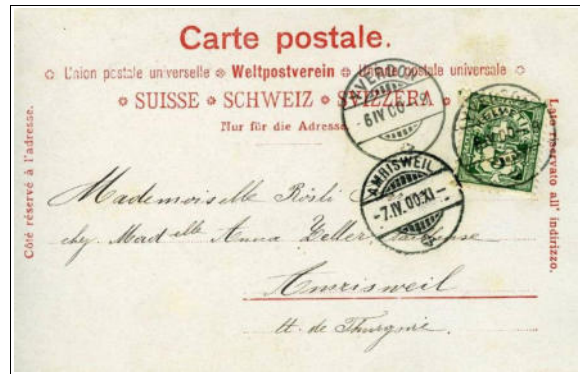 Carte postale.
Union postale universelle Weltpostverein Unione postale universale
SUISSE SCHWEIZ SVIZZERA
Nur für die Adresse
Côté réservé à l'adresse.
Lato riservato all' indirizzo.
YVERDON
-6.IV.00.-7
HELVETIA
AMRISWEIL
-7.IV.00.XI-
Mademoiselle Rösli
chez Mad elle Anna Zeller,
Amrisweil
Ct. de Thurgovie.